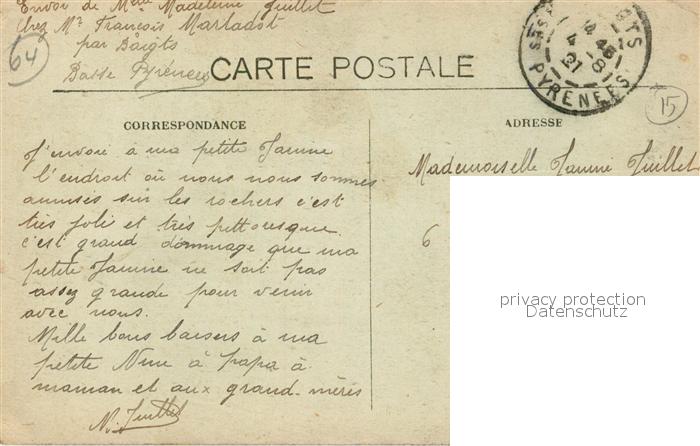 Envoi de Mme Madeleine Juillet
chez Mr François Marladot
par Baigts
Basse Pyrénées
64
CARTE POSTALE
BAIGTS
PYRENEES
15
CORRESPONDANCE
ADRESSE
J'envoie à ma petite Janine
l'endroit où nous nous sommes
amusés sur les rochers c'est
très joli et très pittoresque
c'est grand dommage que ma
petite Janine ne soit pas
assez grande pour venir
avec nous.
Mille bons baisers à ma
petite Nine à papa à
maman et aux grand-mères
Juillet
Mademoiselle Janine Juillet
6
privacy protection
Datenschutz